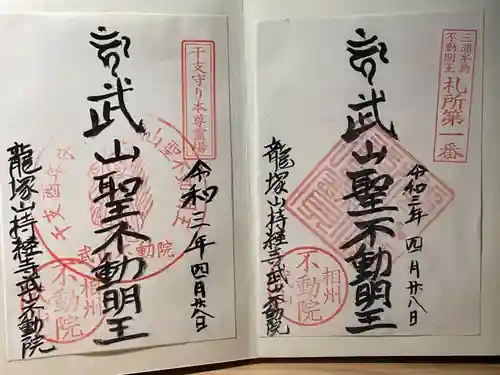 三浦半島
不動明王
札所第一番
令和三年 四月廿八日
武山聖不動明王
龍塚山持経寺武山不動院
相州
不動院
干支守り本尊霊場
令和三年四月廿八日
武山聖不動明王
龍塚山持経寺武山不動院
相州
不動院